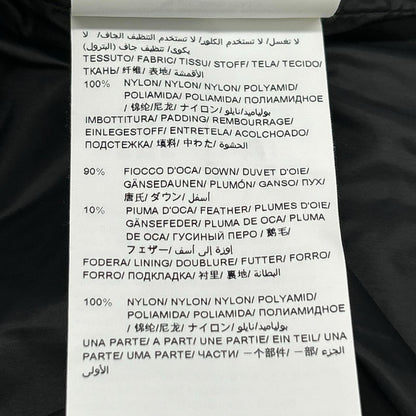 لا تغسل/ لا تستخدم الكلور/ لا تستخدم التنظيف الجاف/ لا
يكوى/ تنظيف جاف (البترول)
TESSUTO/ FABRIC/ TISSU/ STOFF/ TELA/ TECIDO/
ТКАНЬ/ 纤维/ 表地/ الأقمشة
100% NYLON/ NYLON/ NYLON/ POLYAMID/
POLIAMIDA/ POLIAMIDA/ ПОЛИАМИДНОЕ
/ 锦纶/尼龙/ ナイロン/ بولياميد/نايلو
IMBOTTITURA/ PADDING/ REMBOURRAGE/
EINLEGESTOFF/ ENTRETELA/ ACOLCHOADO/
ПОДСТЕЖКА/ 填料/ 中わた/ الحشوة
90% FIOCCO D'OCA/ DOWN/ DUVET D'OIE/
GÄNSEDAUNEN/ PLUMÓN/ GANSO/ ПУХ/
唐氏/ ダウン/ أسفل
10% PIUMA D'OCA/ FEATHER/ PLUMES D'OIE/
GÄNSEFEDER/ PLUMA DE OCA/ PLUMA
DE OCA/ ГУСИНЫЙ ПЕРО / 鹅毛/
フェザー/ أوزة إلى أسف
FODERA/ LINING/ DOUBLURE/ FUTTER/ FORRO/
FORRO/ ПОДКЛАДКА/ 衬里/ 裏地/ البطانة
100% NYLON/ NYLON/ NYLON/ POLYAMID/
POLIAMIDA/ POLIAMIDA/ ПОЛИАМИДНОЕ
/ 锦纶/尼龙/ ナイロン/ بولياميد/نايلو
UNA PARTE/ A PART/ UNE PARTIE/ EIN TEIL/ UNA
PARTE/ UMA PARTE/ ЧАСТИ/ 一个部件/ 一部/ الجزء
الأولى